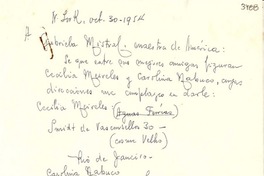 N York, oct. 30-1954
3788
A Gabriela Mistral, maestra de América:
Se que entre sus mejores amigas figuran
Cecilia Meireles y Carolina Nabuco, cuyas
direcciones me complazco en darle:
Cecilia Meireles (Aguas Férreas)
Smith de Vasconcellos 30 —
(Cosme Velho)
Rio de Janeiro —
Carolina Nabuco